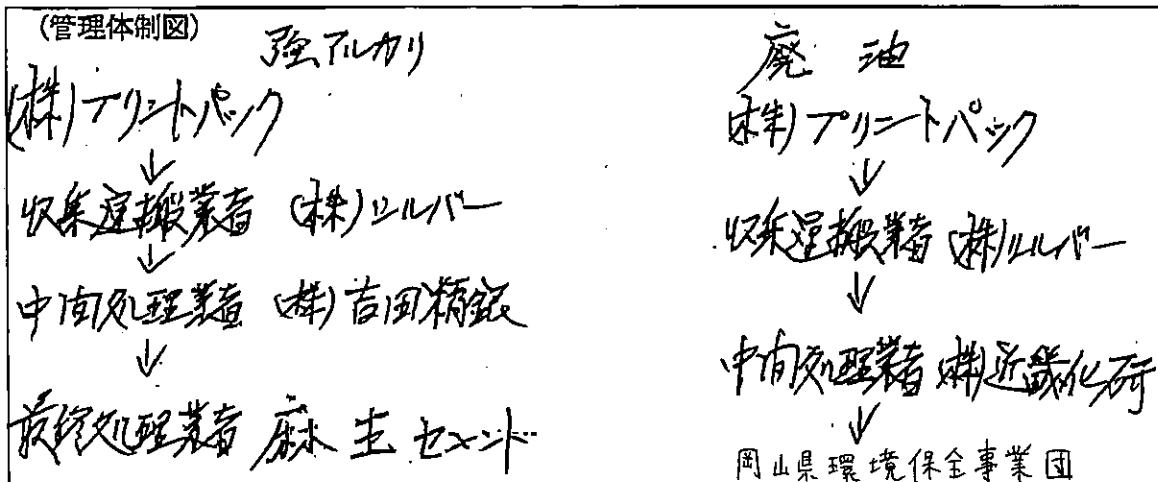 (管理体制図)
強アルカリ
(株)プリントパック
↓
収集運搬業者 (株)シルバー
↓
中間処理業者 (株)吉田精銀
↓
最終処理業者 麻生セメント
廃油
(株)プリントパック
↓
収集運搬業者 (株)シルバー
↓
中間処理業者 (株)近畿化研
↓
岡山県環境保全事業団